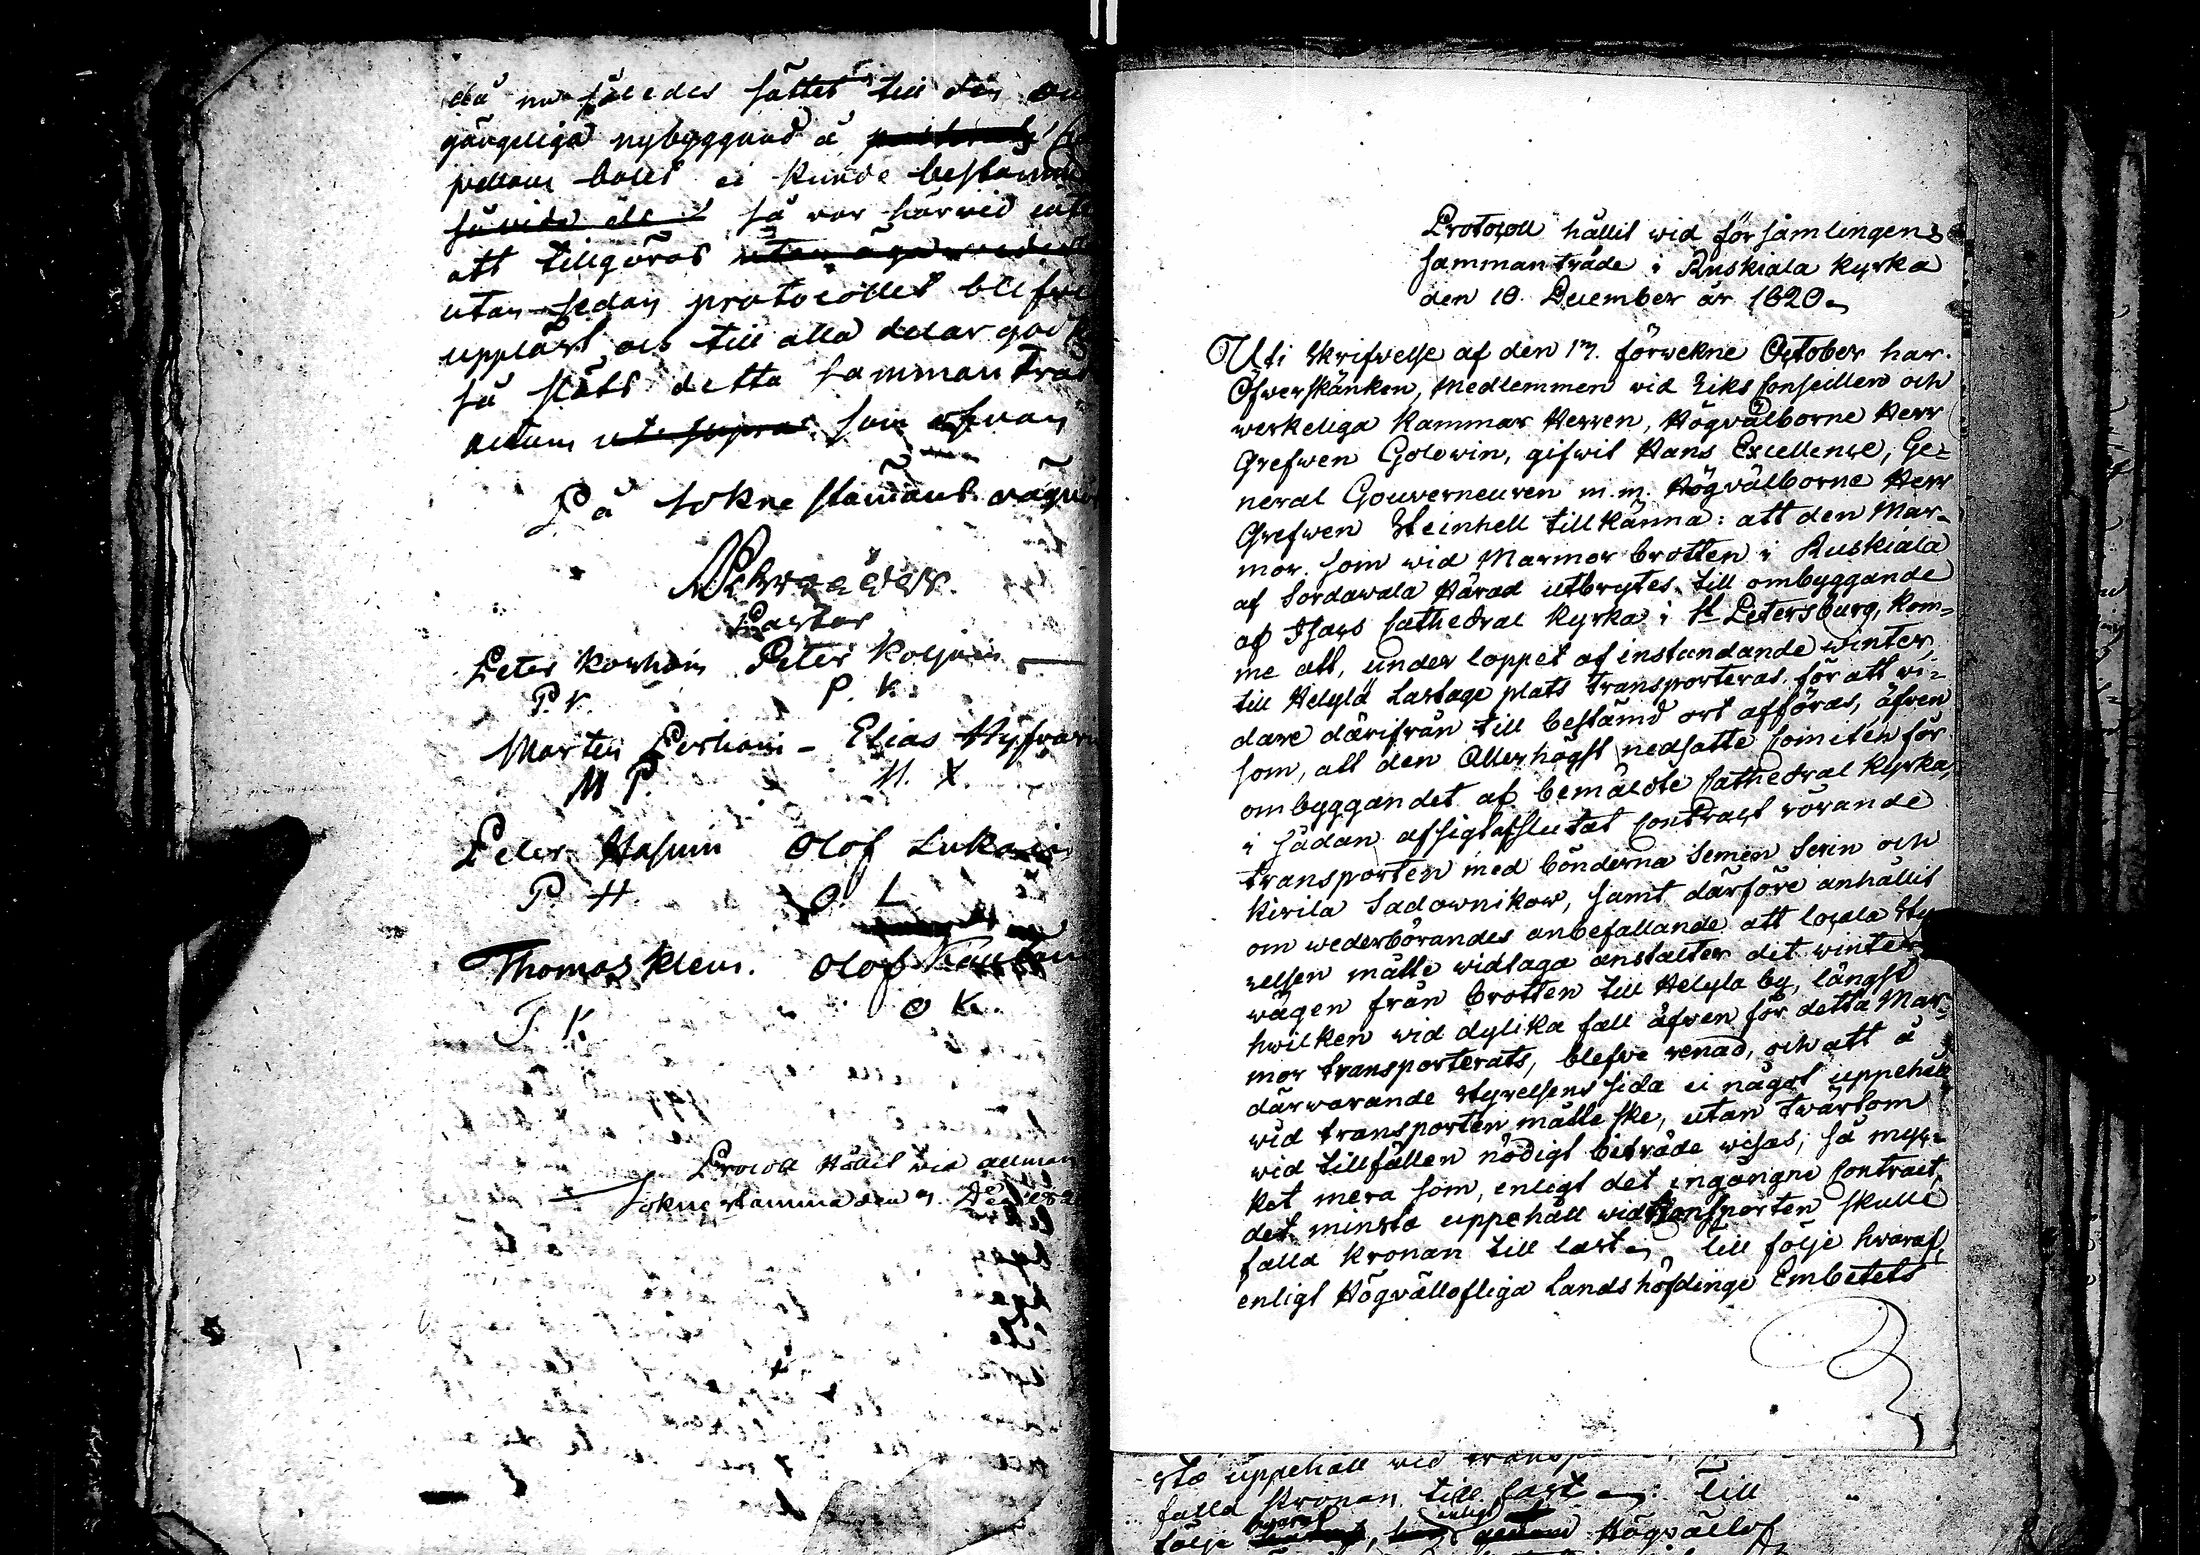 då nu således sättet till den
gängeliga nybyggnad å
pellans boält ei kunde bestämm
så vida de så var härvid int
att tillgöras utan äga
utan sedan protocollet blifve
uppläst och till alla delar godk
så slöts detta Sammanträd
actum ut supra som ofvan
På Sokne stämans vägnar
Pastor
Peter Korhoin Peter Koljoin
P. K. P. K.
Morten Perhoin - Elias
M P. H. X.
Peter Hasuin Olof Lukain
P. H. O. L
Thomas Klem. Olof
T. K. O K.
Procoll Hållit wid allmän
Sokne stämma den
Protocoll hållit wid församlingens
sammanträde i Ruskiala Kyrka
den 10. December år 1820.
Uti Skrifwelse af den 17. förwekne October har
Öfwerskänken, Medlemmen vid Riks Conseillen och
werkeliga Kammar Herren, Högvälborne Herr
Grefwen Golowin, gifwit Hans Excellence, Ge=
neral Gouverneuren m.m. Högvälborne Herr
Grefwen Steinhell tillkänna: att den Mar-
mor som wid Marmor brotten i Ruskiala
af Sordawala Härad utbrytes till ombyggande
af Isaks Cathedral Kyrka i St Petersburg, kom=
me att, under loppet af instundande winter,
till Helylä Lastage plats transporteras för att vi=
dare därifrån till bestämd ort afföras, äfven
som, att den Allerhögst nedsatte Comitén för
ombyggandet af bemäldte Cathedral Kyrka,
i sådan afsigt afslutat Contract rörande
transporten med bönderna Semen Serin och
Kirila Sadownikow, samt därföre anhållit
om wederbörandes anbefallande att locala Sty
relsen måtte widtaga anstalter det winter
wägen från brotten till Helyla by, längst
hwilken wid dylika fall äfwen för detta Mar=
mor transporterats, blefve renad, och att å
därwarande Styrelsens sida ei något uppehåll
wid transporten måtte ske, utan twärtom
wid tillfällen nödigt biträde wisas, så myc=
ket mera som, enligt det ingångne Contract,
det minsta uppehåll wid transporten skulle
falla Kronan till last. Till följe hwaraf,
enligt Högvällofliga Lands höfdinge Embetets
sta uppehåll vid transp
falla Kronan till last. Till
följe hwaraf, enligt Högvällof